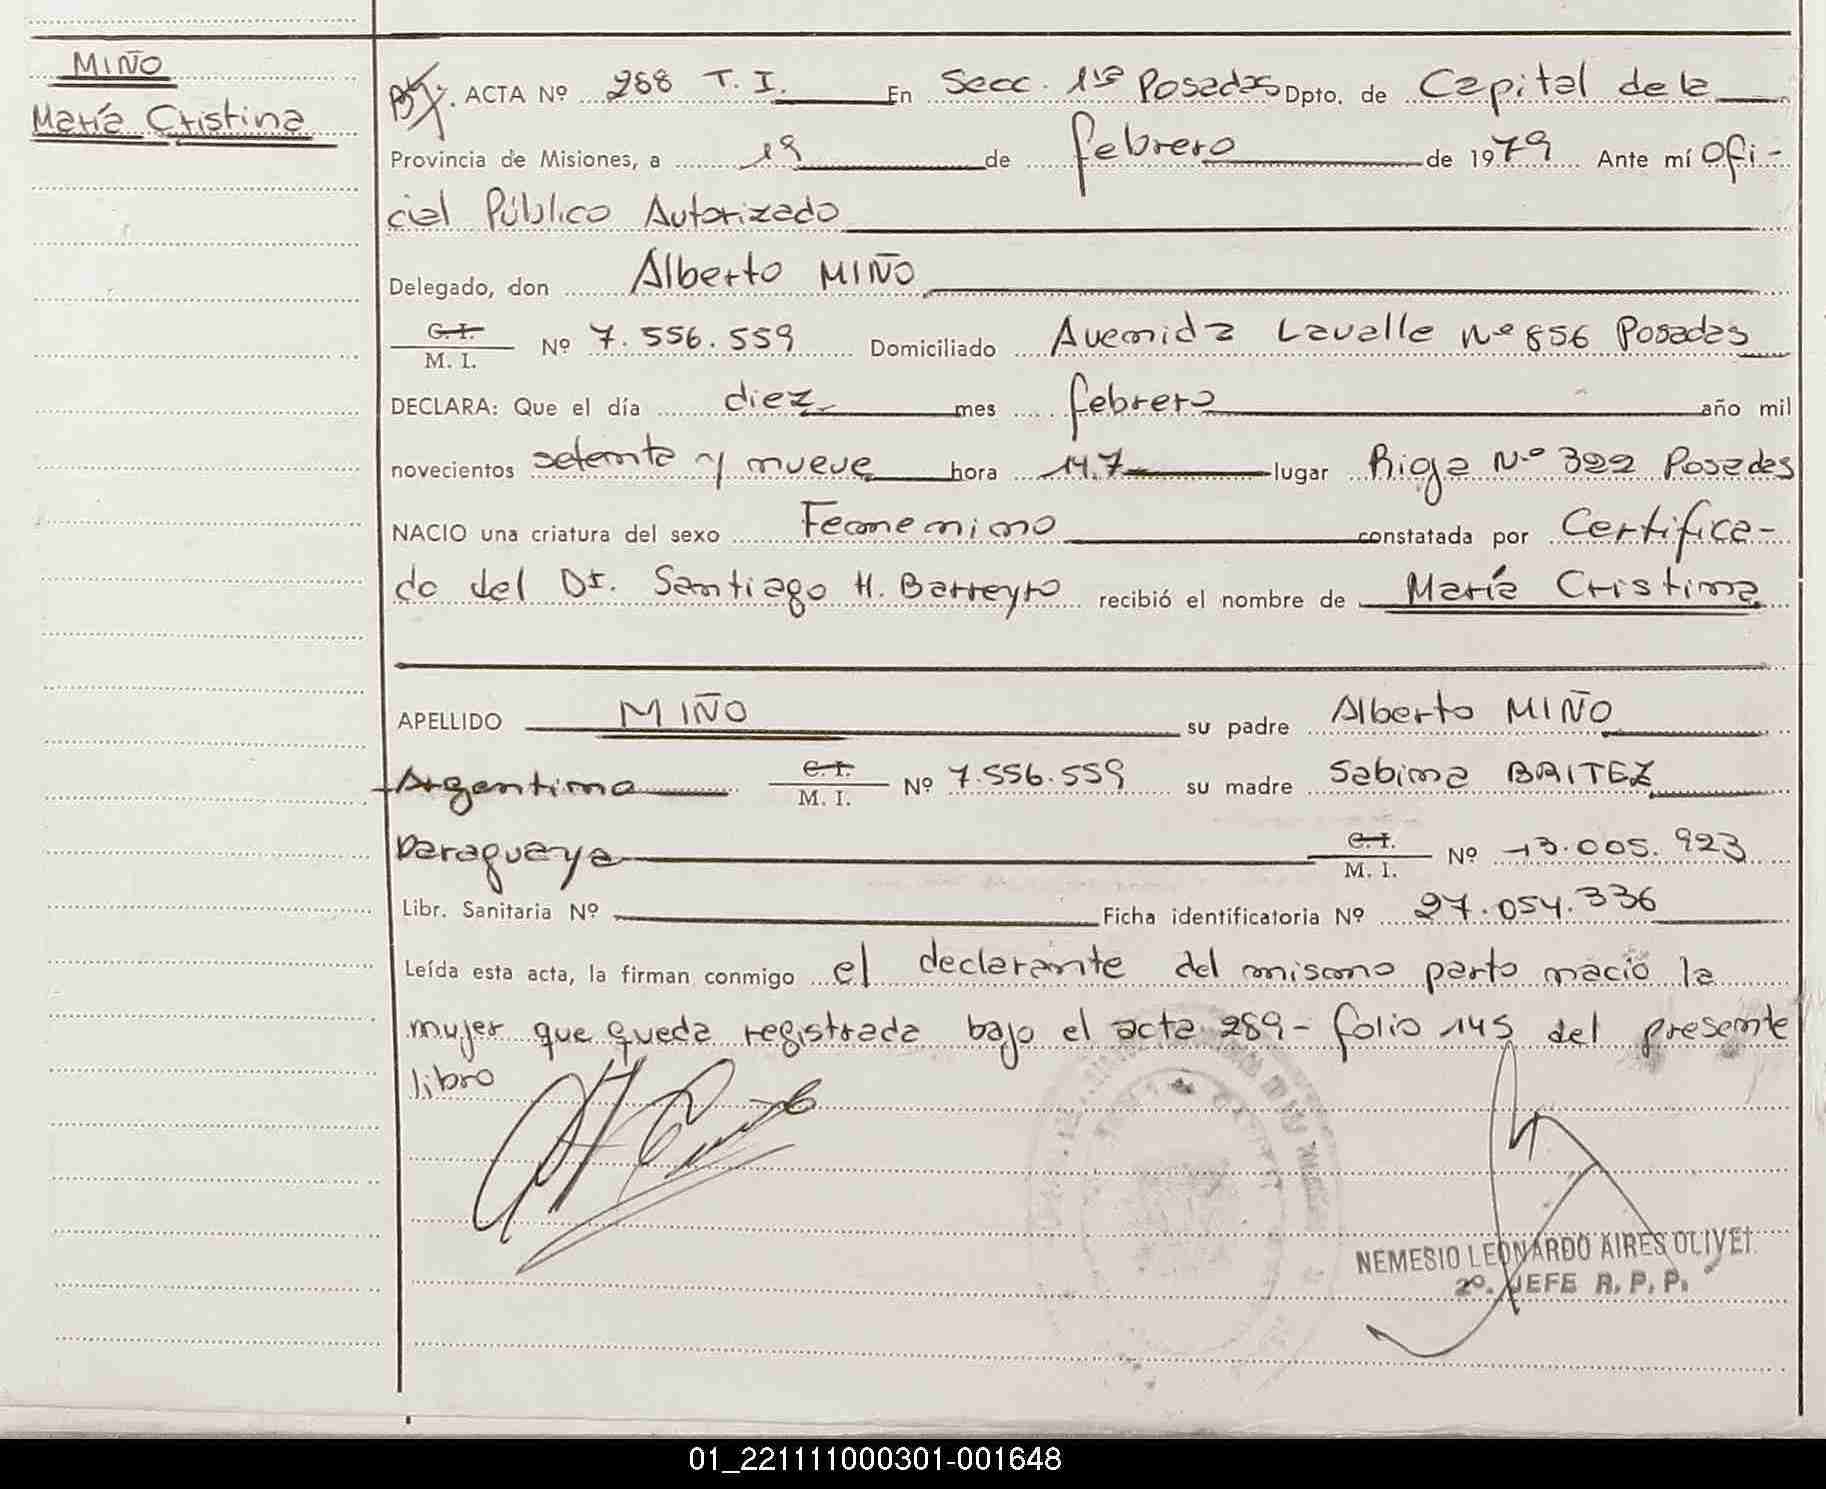 MIÑO
María Cristina
ACTA Nº 288 T. I. En Secc. 1ra Posadas Dpto. de Capital de la
Provincia de Misiones, a 19 de febrero de 1979 Ante mí Ofi-
cial Público Autorizado
Delegado, don Alberto MIÑO
C. I.
M. I. Nº 7.556.559 Domiciliado Avenida Lavalle Nº 856 Posadas
DECLARA: Que el día diez mes febrero año mil
novecientos setenta y nueve hora 14.7 lugar Rioja Nº 322 Posadas
NACIO una criatura del sexo Femenino constatada por Certifica-
do del Dr. Santiago H. Barreyro recibió el nombre de María Cristina
APELLIDO MIÑO su padre Alberto MIÑO
Argentino C. I.
M. I. Nº 7.556.559 su madre Sabina BRITEZ
Paraguaya C. I.
M. I. Nº 13.005.923
Libr. Sanitaria Nº Ficha identificatoria Nº 27.054.336
Leída esta acta, la firman conmigo el declarante del mismo parto nació la
mujer que queda registrada bajo el acta 289 - folio 145 del presente
libro
NEMESIO LEONARDO AIRES OLIVEI
2º. JEFE R. P. P.
01_221111000301-001648